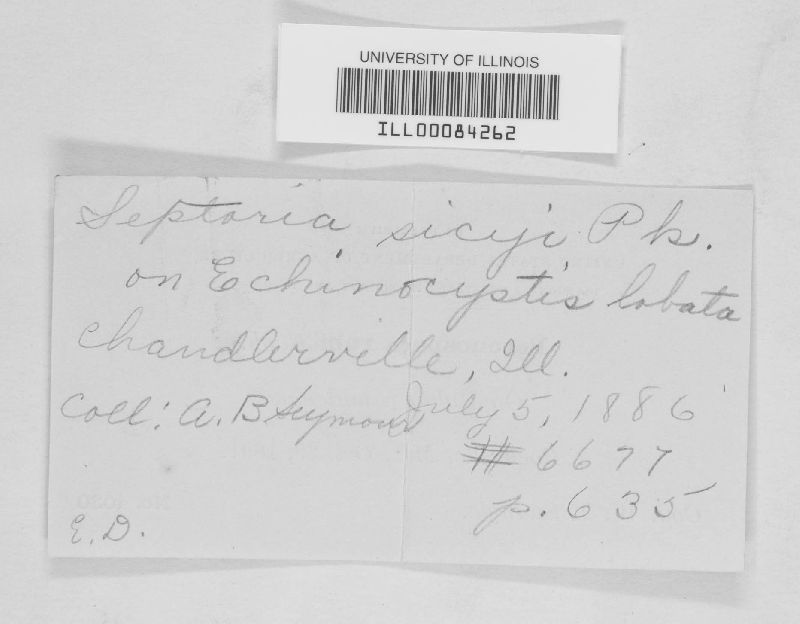 UNIVERSITY OF ILLINOIS
ILL00084262
Septoria sicyi Pk.
on Echinocystis lobata
Chandlerville, Ill.
Coll: A. B Seymour July 5, 1886
# 6677
p. 635
E.D.